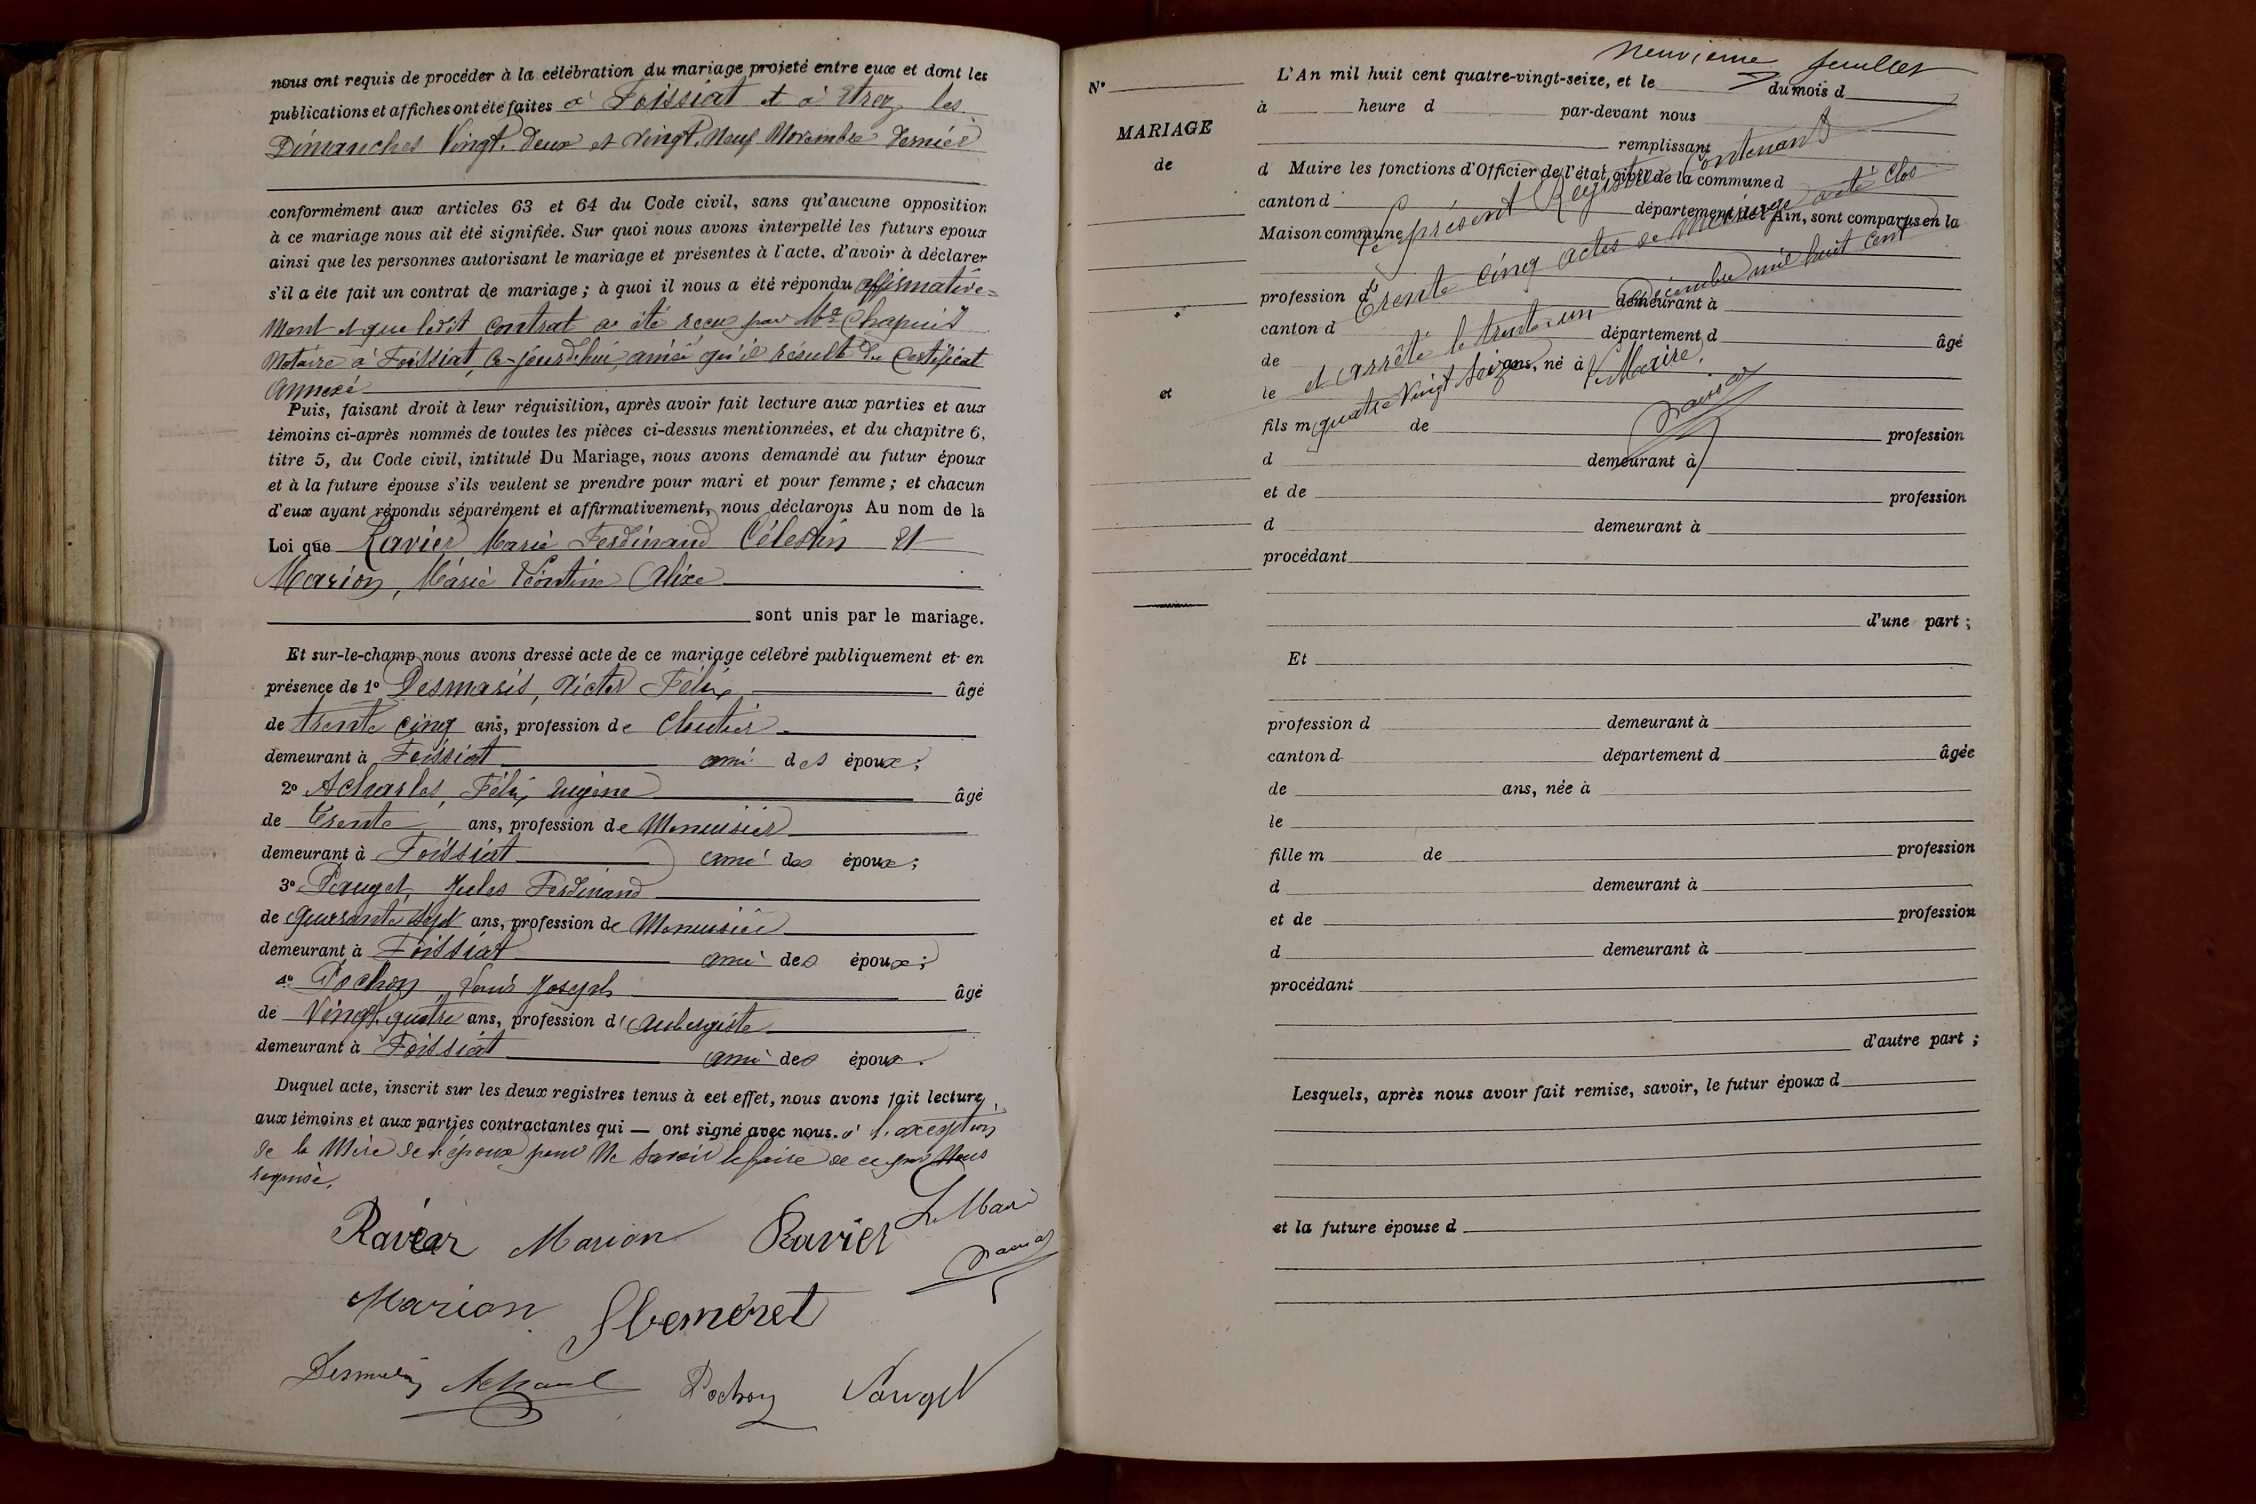 nous ont requis de procéder à la célébration du mariage projeté entre eux et dont les
publications et affiches ont été faites à Foissiat et à Etrez, les
Dimanches Vingt-Deux et Vingt-Neuf Novembre Dernier
conformément aux articles 63 et 64 du Code civil, sans qu'aucune opposition
à ce mariage nous ait été signifiée. Sur quoi nous avons interpellé les futurs epoux
ainsi que les personnes autorisant le mariage et présentes à l'acte, d'avoir à déclarer
s'il a été fait un contrat de mariage ; à quoi il nous a été répondu affirmative=
ment et que ledit contrat a été reçu par Me Chapuis
Notaire à Foissiat, ce-jourd'hui, ainsi qu'il résulte du Certificat
annexé
Puis, faisant droit à leur réquisition, après avoir fait lecture aux parties et aux
témoins ci-après nommés de toutes les pièces ci-dessus mentionnées, et du chapitre 6,
titre 5, du Code civil, intitulé Du Mariage, nous avons demandé au futur époux
et à la future épouse s'ils veulent se prendre pour mari et pour femme ; et chacun
d'eux ayant répondu séparément et affirmativement, nous déclarons Au nom de la
Loi que Ravier Marie Ferdinand Célestin Et
Marion, Marie Léontine Alixe
sont unis par le mariage.
Et sur-le-champ nous avons dressé acte de ce mariage célébré publiquement et en
présence de 1° Desmaris, Victor Félix âgé
de trente cinq ans, profession de Cloutier
demeurant à Foissiat ami des époux ;
2° Acharles, Félix Eugène âgé
de Trente ans, profession de Menuisier
demeurant à Foissiat ami des époux ;
3° Pauget, Jules Ferdinand
de quarante sept ans, profession de Menuisier
demeurant à Foissiat ami des époux ;
4° Pochon, Louis Joseph âgé
de Vingt-quatre ans, profession d'aubergiste
demeurant à Foissiat ami des époux.
Duquel acte, inscrit sur les deux registres tenus à cet effet, nous avons fait lecture
aux témoins et aux parties contractantes qui — ont signé avec nous. à l'exception
de la Mère de l'époux pour ne savoir le faire de ce par Nous
requise.
Ravier Marion Ravier Le Maire
Marion
Pochon Pauget
Neuvième feuillet
N° L'An mil huit cent quatre-vingt-seize, et le du mois d
à heure d par-devant nous
MARIAGE
de
remplissant
d Maire les fonctions d'Officier de l'état civil de la commune d
canton d département de l'Ain, sont comparus en la
Maison commune
Le présent Registre Contenant
Trente Cinq actes de Mariage a été Clos
et arrêté le trente-un Décembre mil huit Cent
quatre Vingt Seize
Le Maire,
profession d demeurant à
canton d département d âgé
de ans, né à
et
le
fils m de profession
d demeurant à
et de profession
d demeurant à
procédant
d'une part ;
Et
profession d demeurant à
canton d département d âgée
de ans, née à
le
fille m de profession
d demeurant à
et de profession
d demeurant à
procédant
d'autre part ;
Lesquels, après nous avoir fait remise, savoir, le futur époux d
et la future épouse d